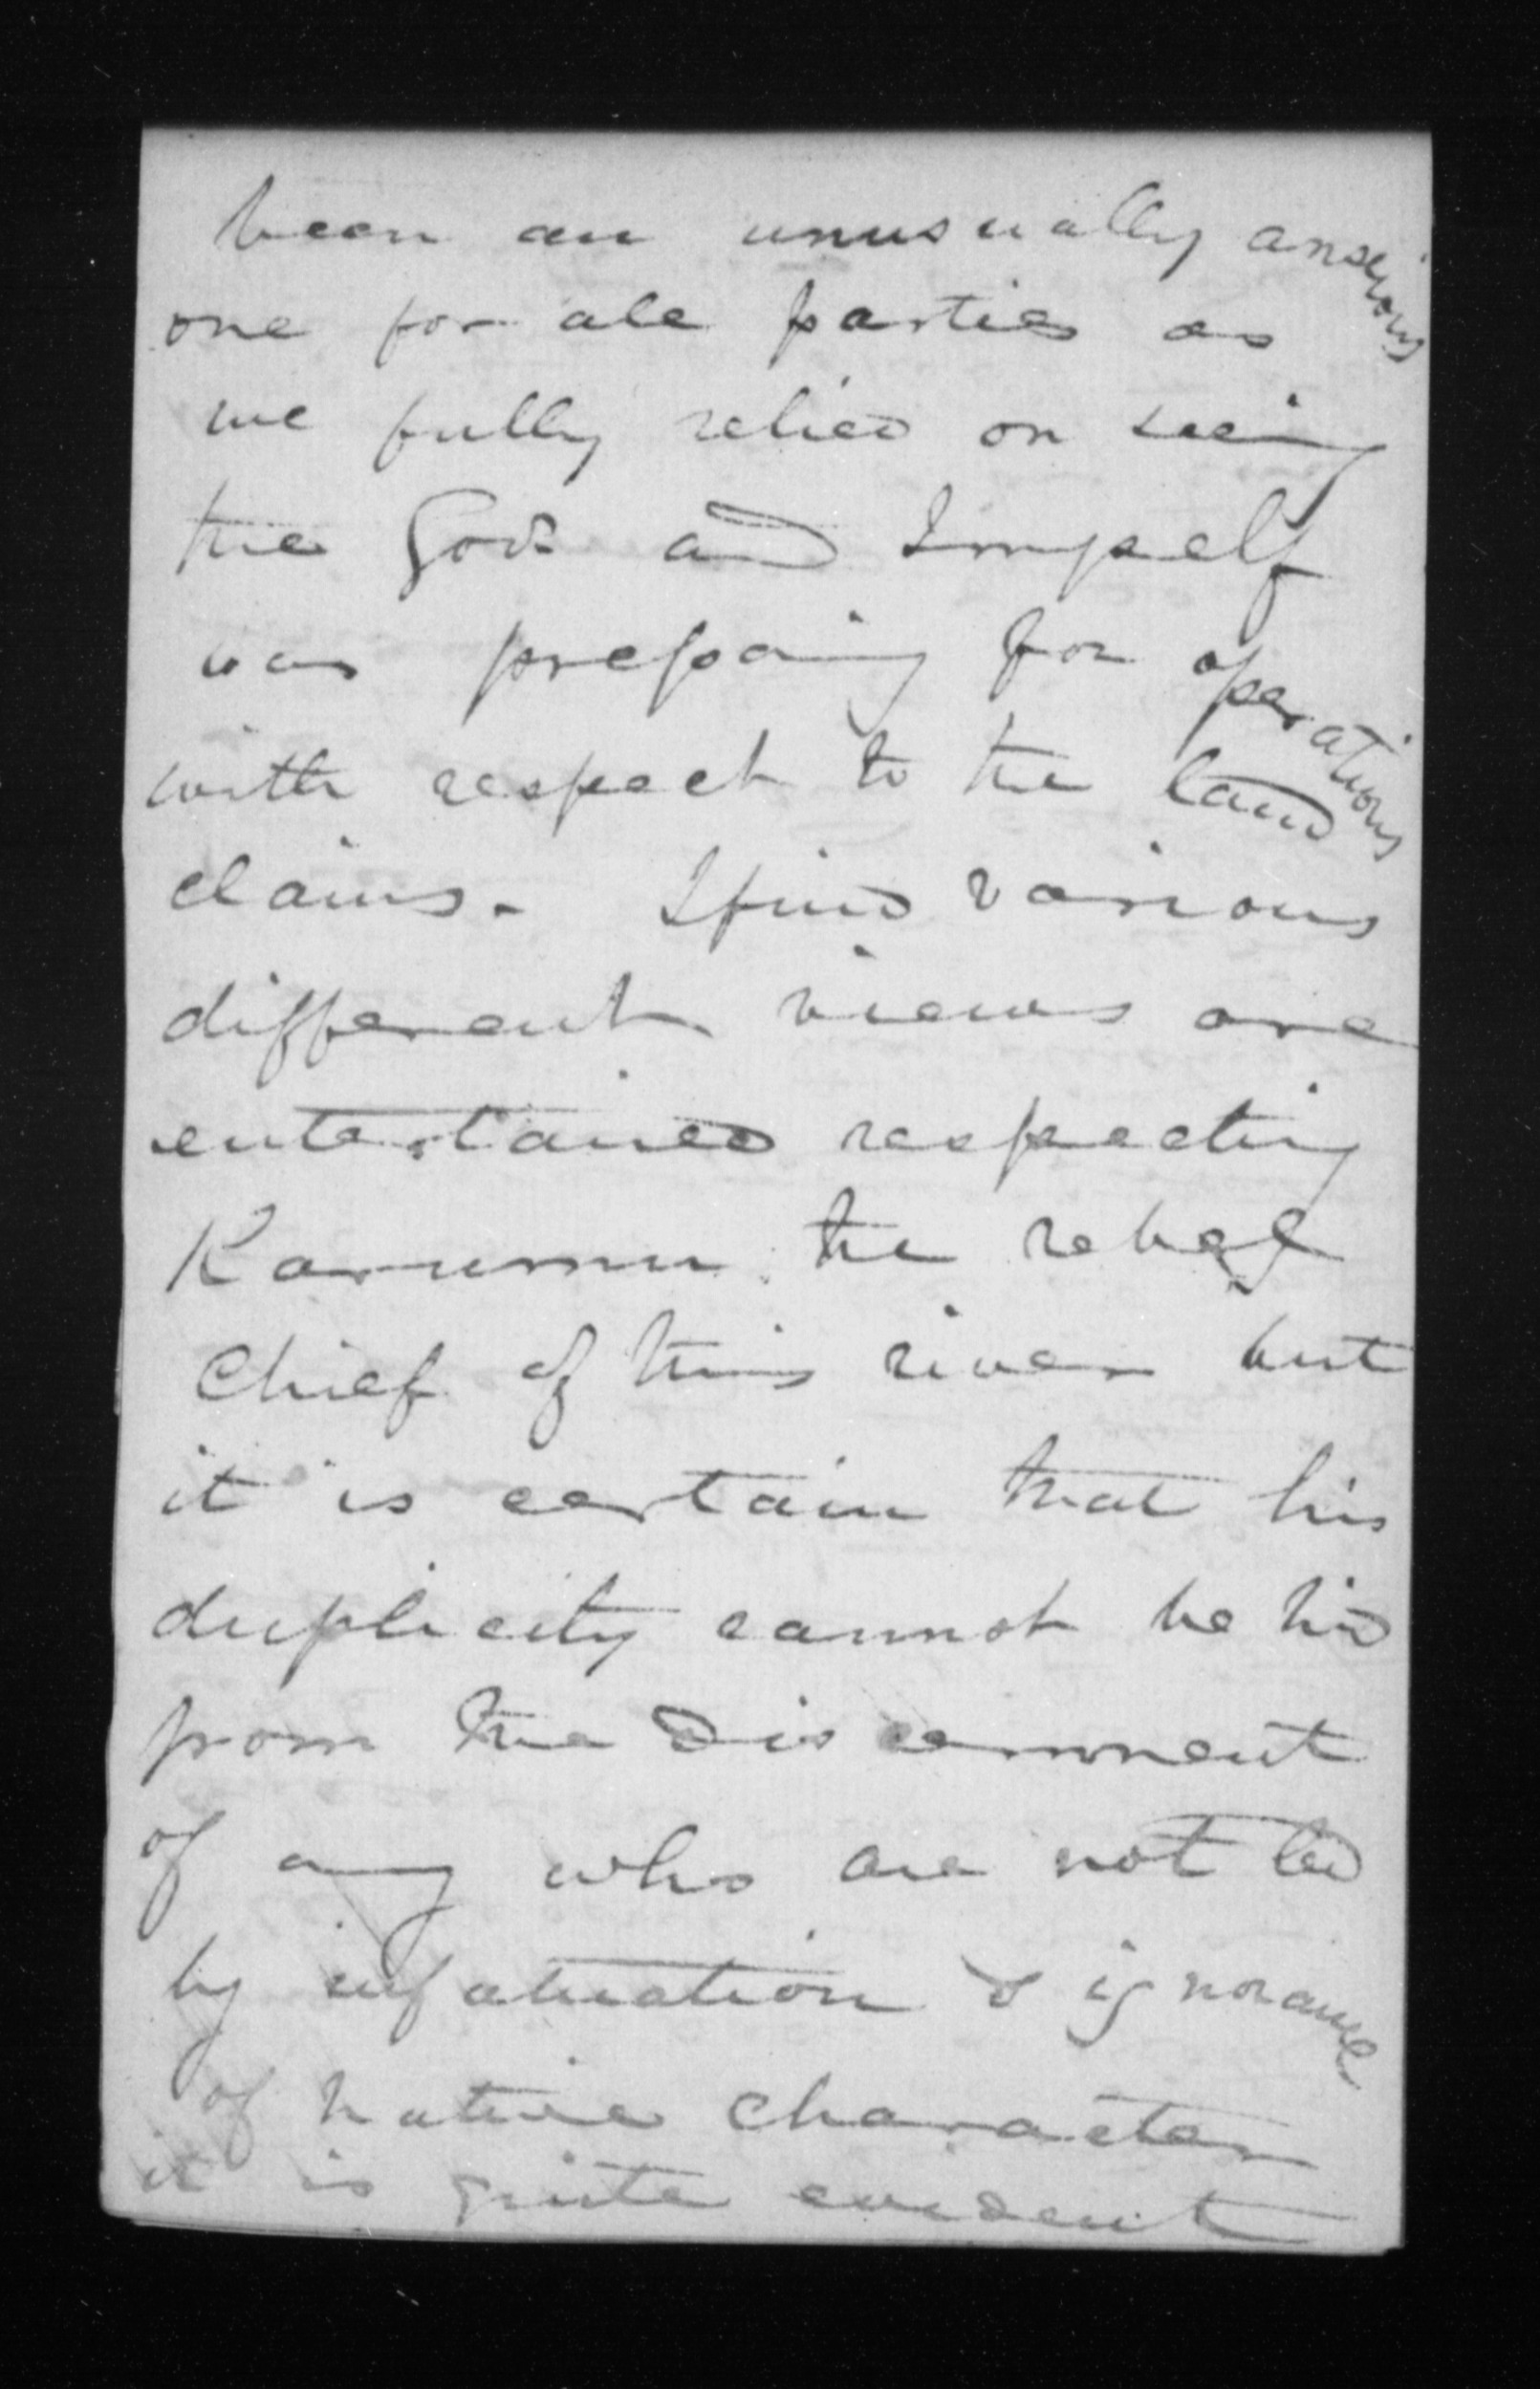 been an unusually anxious
one for all parties as
we fully relied on seeing
the Govr and I myself
was prepaing for operations
with respect to the land
claims. I find various
different views are
entertained respecting
the rebel
Chief of this river but
it is certain that his
duplicity cannot be hid
from the discernment
of any who are not led
by infatuation & ignorance
of native character
it is quite evident